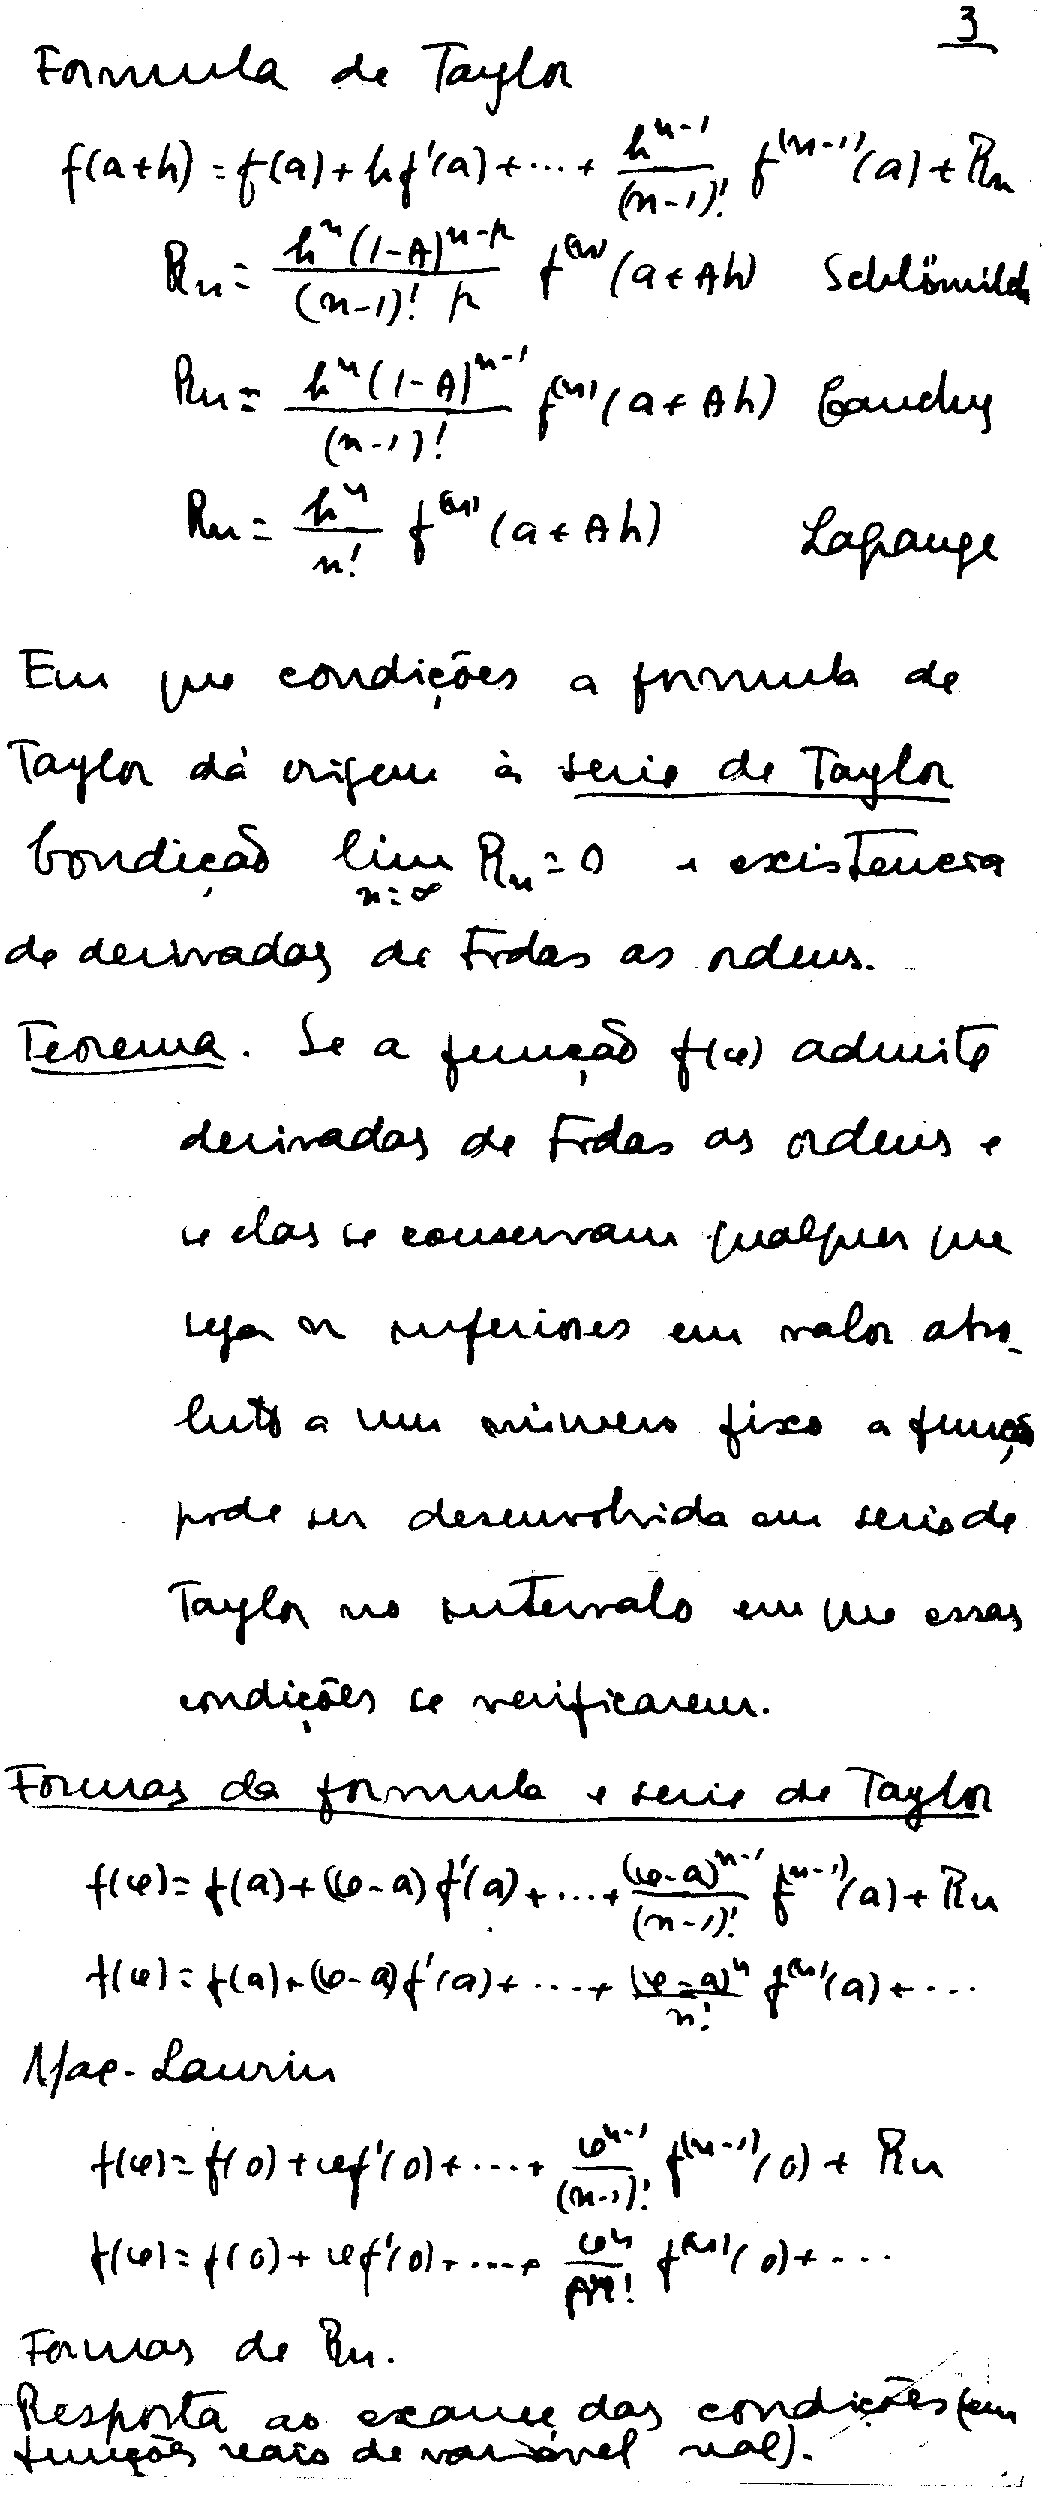 3
Formula de Taylor
f(a+h) = f(a) + h f'(a) + ... + \frac{h^{n-1}}{(n-1)!} f^{(n-1)}(a) + R_n
R_n = \frac{h^n (1-θ)^{n-p}}{(n-1)! p} f^{(n)}(a+θh) Schlömilch
R_n = \frac{h^n (1-θ)^{n-1}}{(n-1)!} f^{(n)}(a+θh) Cauchy
R_n = \frac{h^n}{n!} f^{(n)}(a+θh) Lagrange
Em que condições a formula de
Taylor dá origem à serie de Taylor
Condição lim_{n=∞} R_n = 0 e existencia
de derivadas de todas as ordens.
Teorema. Se a função f(x) admite
derivadas de todas as ordens e
se elas se conservam qualquer que
seja n inferiores em valor abso-
luto a um número fixo a função
pode ser desenvolvida em serie de
Taylor no intervalo em que essas
condições se verificarem.
Formas da formula e serie de Taylor
f(x) = f(a) + (x-a) f'(a) + .... + \frac{(x-a)^{n-1}}{(n-1)!} f^{(n-1)}(a) + R_n
f(x) = f(a) + (x-a) f'(a) + .... + \frac{(x-a)^n}{n!} f^{(n)}(a) + ...
Mac-Laurin
f(x) = f(0) + x f'(0) + .... + \frac{x^{n-1}}{(n-1)!} f^{(n-1)}(0) + R_n
f(x) = f(0) + x f'(0) + .... + \frac{x^n}{n!} f^{(n)}(0) + ....
Formas de R_n.
Resposta ao exame das condições (em
funções reais de variável real).